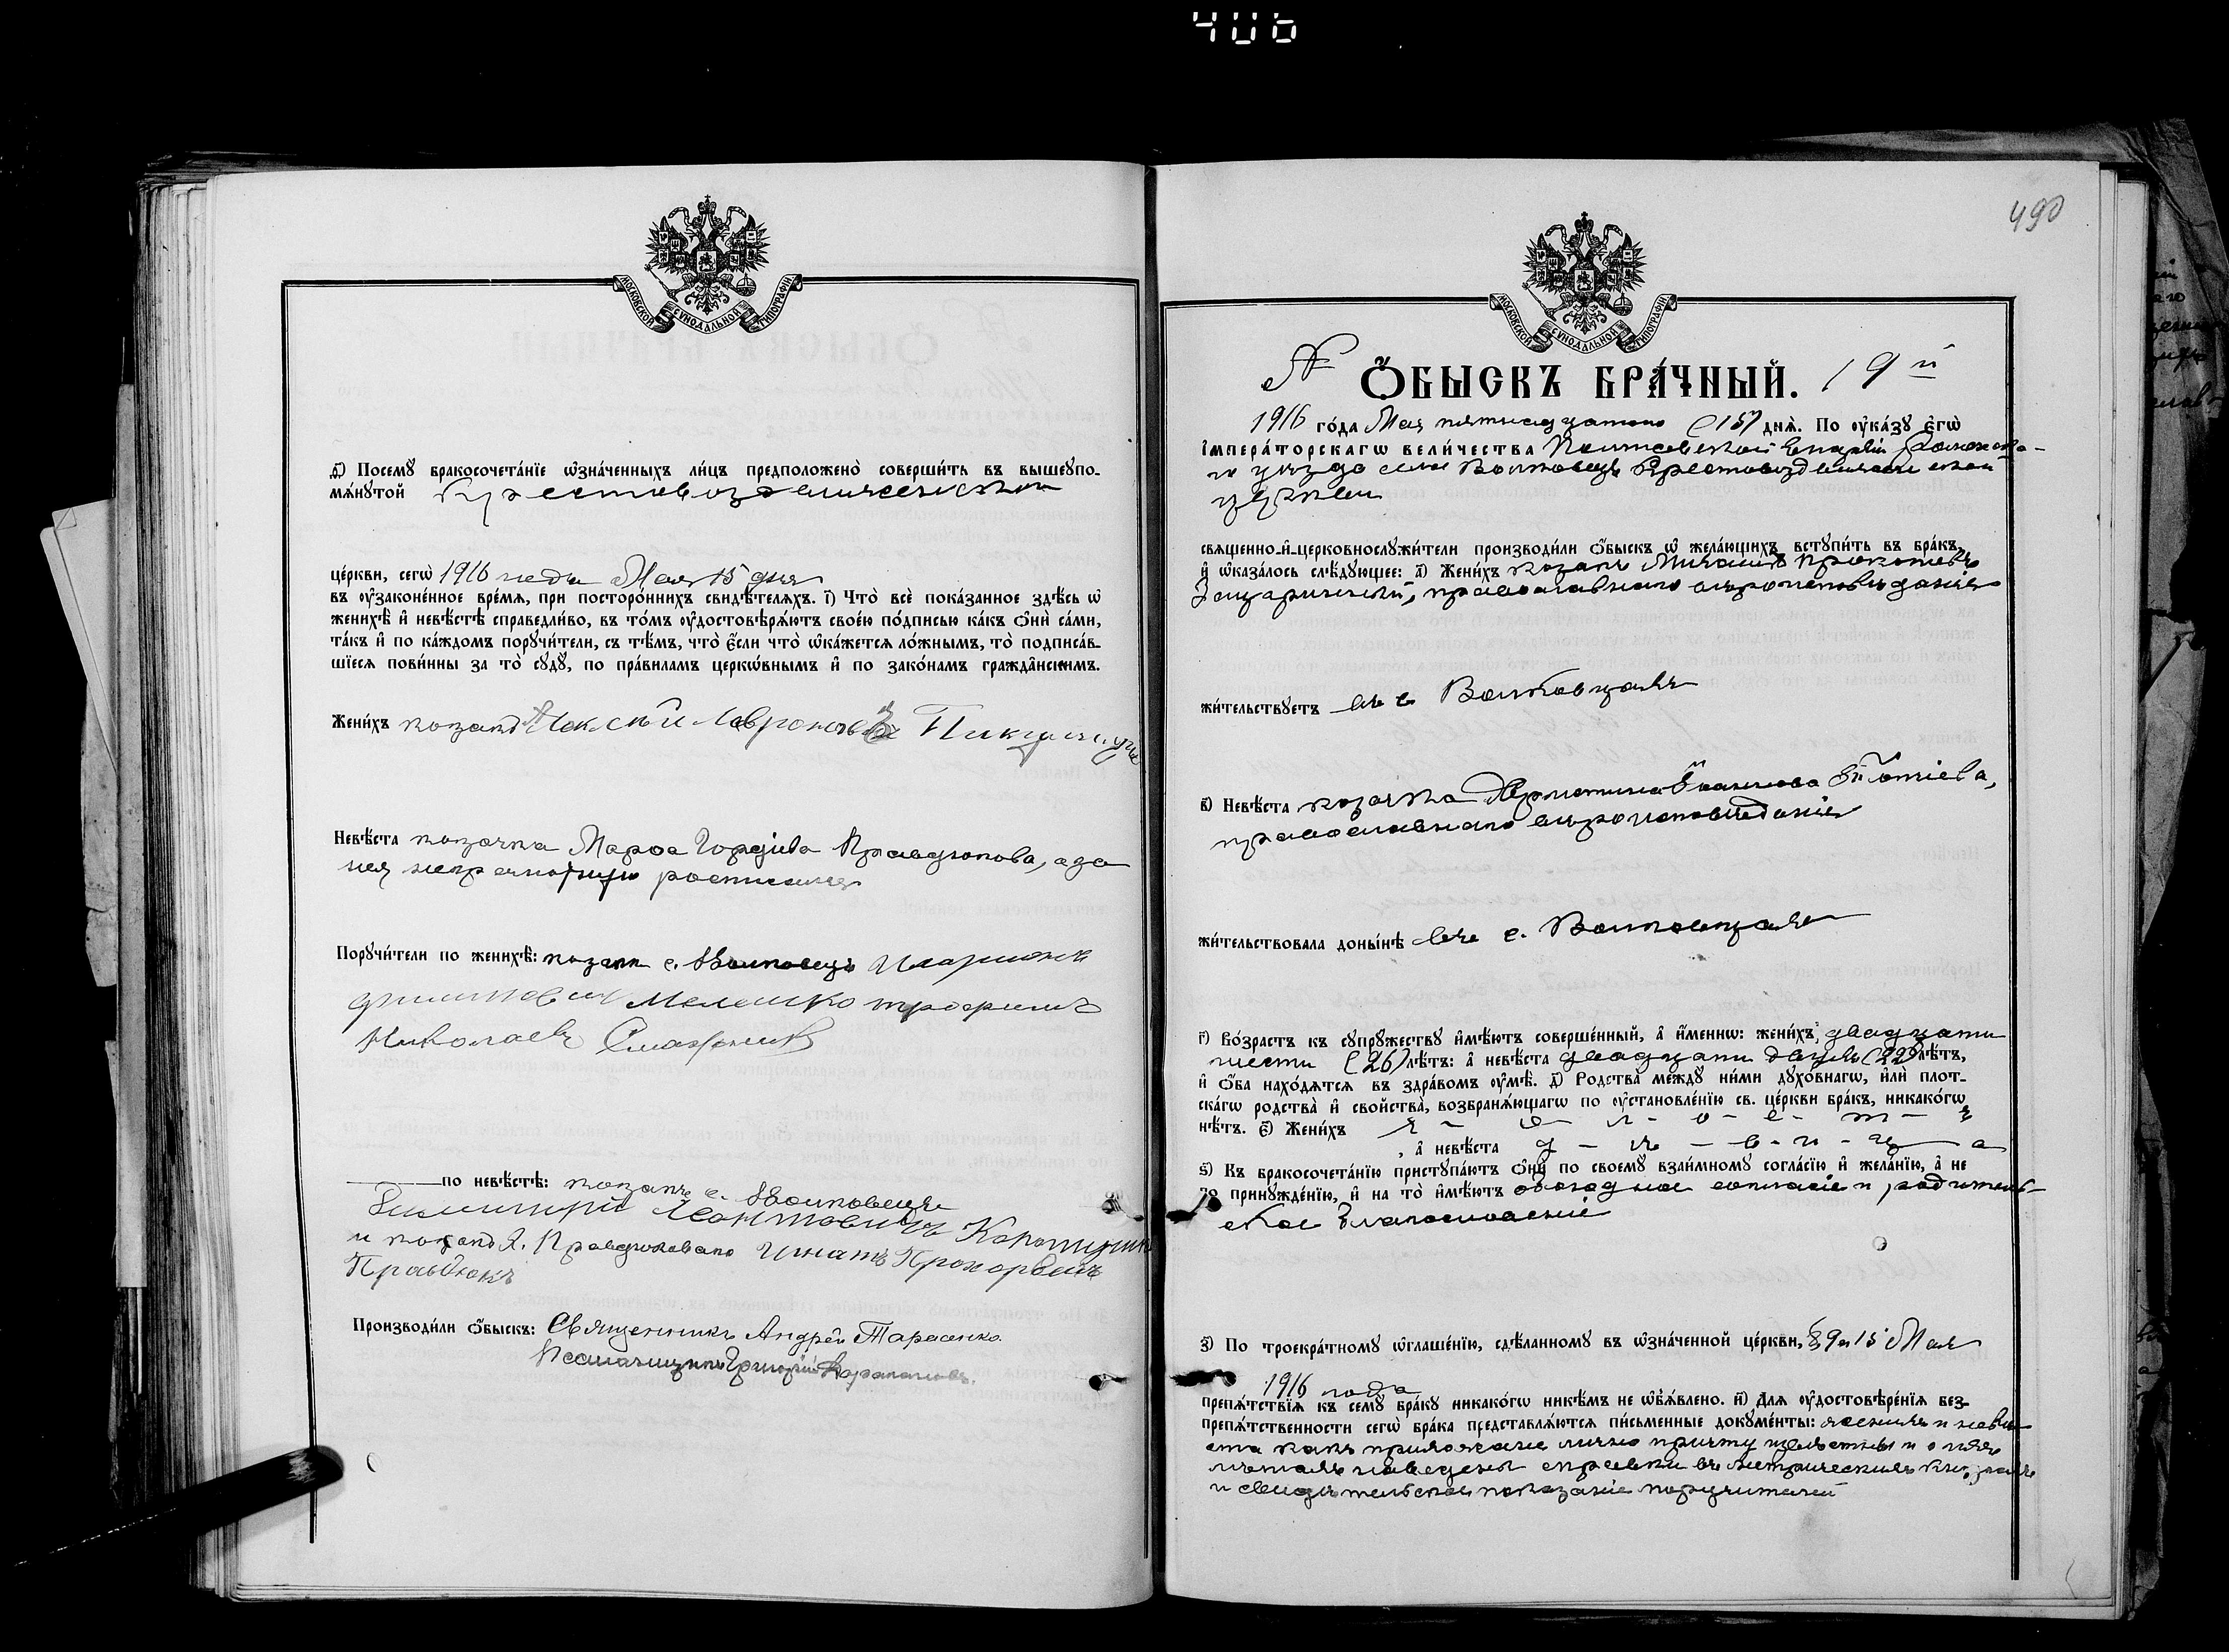 406
МОСКОВСКОЙ СѴНОДАЛЬНОЙ ТИПОГРАФІИ
д҃) Посемꙋ̀ бракосочета́нїе ѡ҆зна́ченныхъ ли́цъ предположено̀ соверши́ть въ вышеꙋпо-
мѧ́нꙋтой Крестовоздвиженской
це́ркви, сегѡ̀ 1916 года Мая 15 дня
въ ᲂу҆законе́нное вре́мѧ, при посторо́ннихъ свидѣ́телѧхъ. і҃) Что̀ всѐ пока́занное здѣ́сь ѡ҆
женихѣ̀ и҆ невѣ́стѣ справедли́во, въ то́мъ ᲂу҆достовѣрѧ́ютъ свое́ю по́дписью ка́къ ѻ҆нѝ са́ми,
та́къ и҆ по ка́ждомъ порꙋчи́тели, съ тѣ́мъ, что̀ є҆́сли что̀ ѡ҆ка́жетсѧ ло́жнымъ, то̀ подписа́в-
шїесѧ пови́нны за то̀ сꙋдꙋ̀, по пра́виламъ церкѡ́внымъ и҆ по зако́намъ гражда̂нскимъ.
Жени́хъ козакъ Алексѣй
Невѣ́ста козачка Марѳа Гордіева Правдюкова, а за
нея неграмотную росписался
Порꙋчи́тели по женихѣ̀: козаки с. Волковецъ Иларионъ
Филиповичъ Мелешко Трофимъ
Николаевъ
по невѣ́стѣ: козакъ с. Волковецъ
Димитрій Леонтовичъ
и козакъ Х. Правдюковаго Игнатъ Прохоровичъ
Правдюкъ
Производи́ли ѻ҆́быскъ: Священникъ Андрей Тарасенко
Псаломщикъ Григорій
490
МОСКОВСКОЙ СѴНОДАЛЬНОЙ ТИПОГРАФІИ
№ Ѻ҆́БЫСКЪ БРА́ЧНЫЙ. 19й
1916 го́да Мая пятнадцатого (15) днѧ̀. По ᲂу҆ка́зꙋ є҆гѡ̀
і҆мпера́торскагѡ вели́чества Полтавской Епархіи Роменска-
го уѣзда села Волковецъ Крестовоздвиженской
церкви
свѧще́нно-и҆-церковнослꙋжи́тели производи́ли ѻ҆́быскъ ѡ҆ жела́ющихъ встꙋпи́ть въ бра́къ,
и҆ ѡ҆каза́лось слѣ́дꙋющее: а҃) Жени́хъ козакъ Михаилъ Прокопіевъ
православнаго вѣроисповѣданія
жи́тельствꙋетъ въ с. Волковцахъ
в҃) Невѣ́ста козачка Христина Іоаннова
православнаго вѣроисповѣданія
жи́тельствовала доны́нѣ въ с. Волковцахъ
г҃) Во́зрастъ къ сꙋпрꙋ́жествꙋ и҆мѣ́ютъ соверше́нный, а҆ и҆́меннѡ: жени́хъ двадцати
шести (26) лѣ́тъ: а҆ невѣ́ста двадцати двухъ (22) лѣ́тъ,
и҆ ѻ҆́ба нахо́дѧтсѧ въ здра́вомъ ᲂу҆мѣ̀. д҃) Родства̀ междꙋ̀ ни́ми дꙋхо́внагѡ, и҆лѝ плот-
ска́гѡ родства̀ и҆ сво́йства̀, возбранѧ́ющагѡ по ᲂу҆становле́нїю св. це́ркви бра́къ, никако́гѡ
нѣ́тъ. є҃) Жени́хъ х - о - л - о - с - т - ъ
, а҆ невѣ́ста д - ѣ - в - и - ц - а
ѕ҃) Къ бракосочета́нїю пристꙋпа́ютъ ѻ҆нѝ по своемꙋ̀ взаи́мномꙋ согла́сїю и҆ жела́нїю, а҆ не
по принꙋжде́нїю, и҆ на то̀ и҆мѣ́ютъ обоюдное согласіе и родитель-
ское благословеніе
з҃) По троекра́тномꙋ ѡ҆глаше́нїю, сдѣ́ланномꙋ въ ѡ҆зна́ченной це́ркви, 8, 9 и 15 Мая
1916 года
препѧ́тствїѧ къ семꙋ̀ бра́кꙋ никако́гѡ никѣ́мъ не ѡ҆бъѧ́влено. и҃) Длѧ̀ ᲂу҆достовѣре́нїѧ без-
препѧ́тственности сегѡ̀ бра́ка представлѧ́ютсѧ пи́сьменные докꙋме́нты: женихъ и невѣ-
ста какъ прихожане лично причту извѣстны и о ихъ
лѣтахъ наведены справки въ метрическихъ книгахъ
и свидѣтельское показаніе поручителей